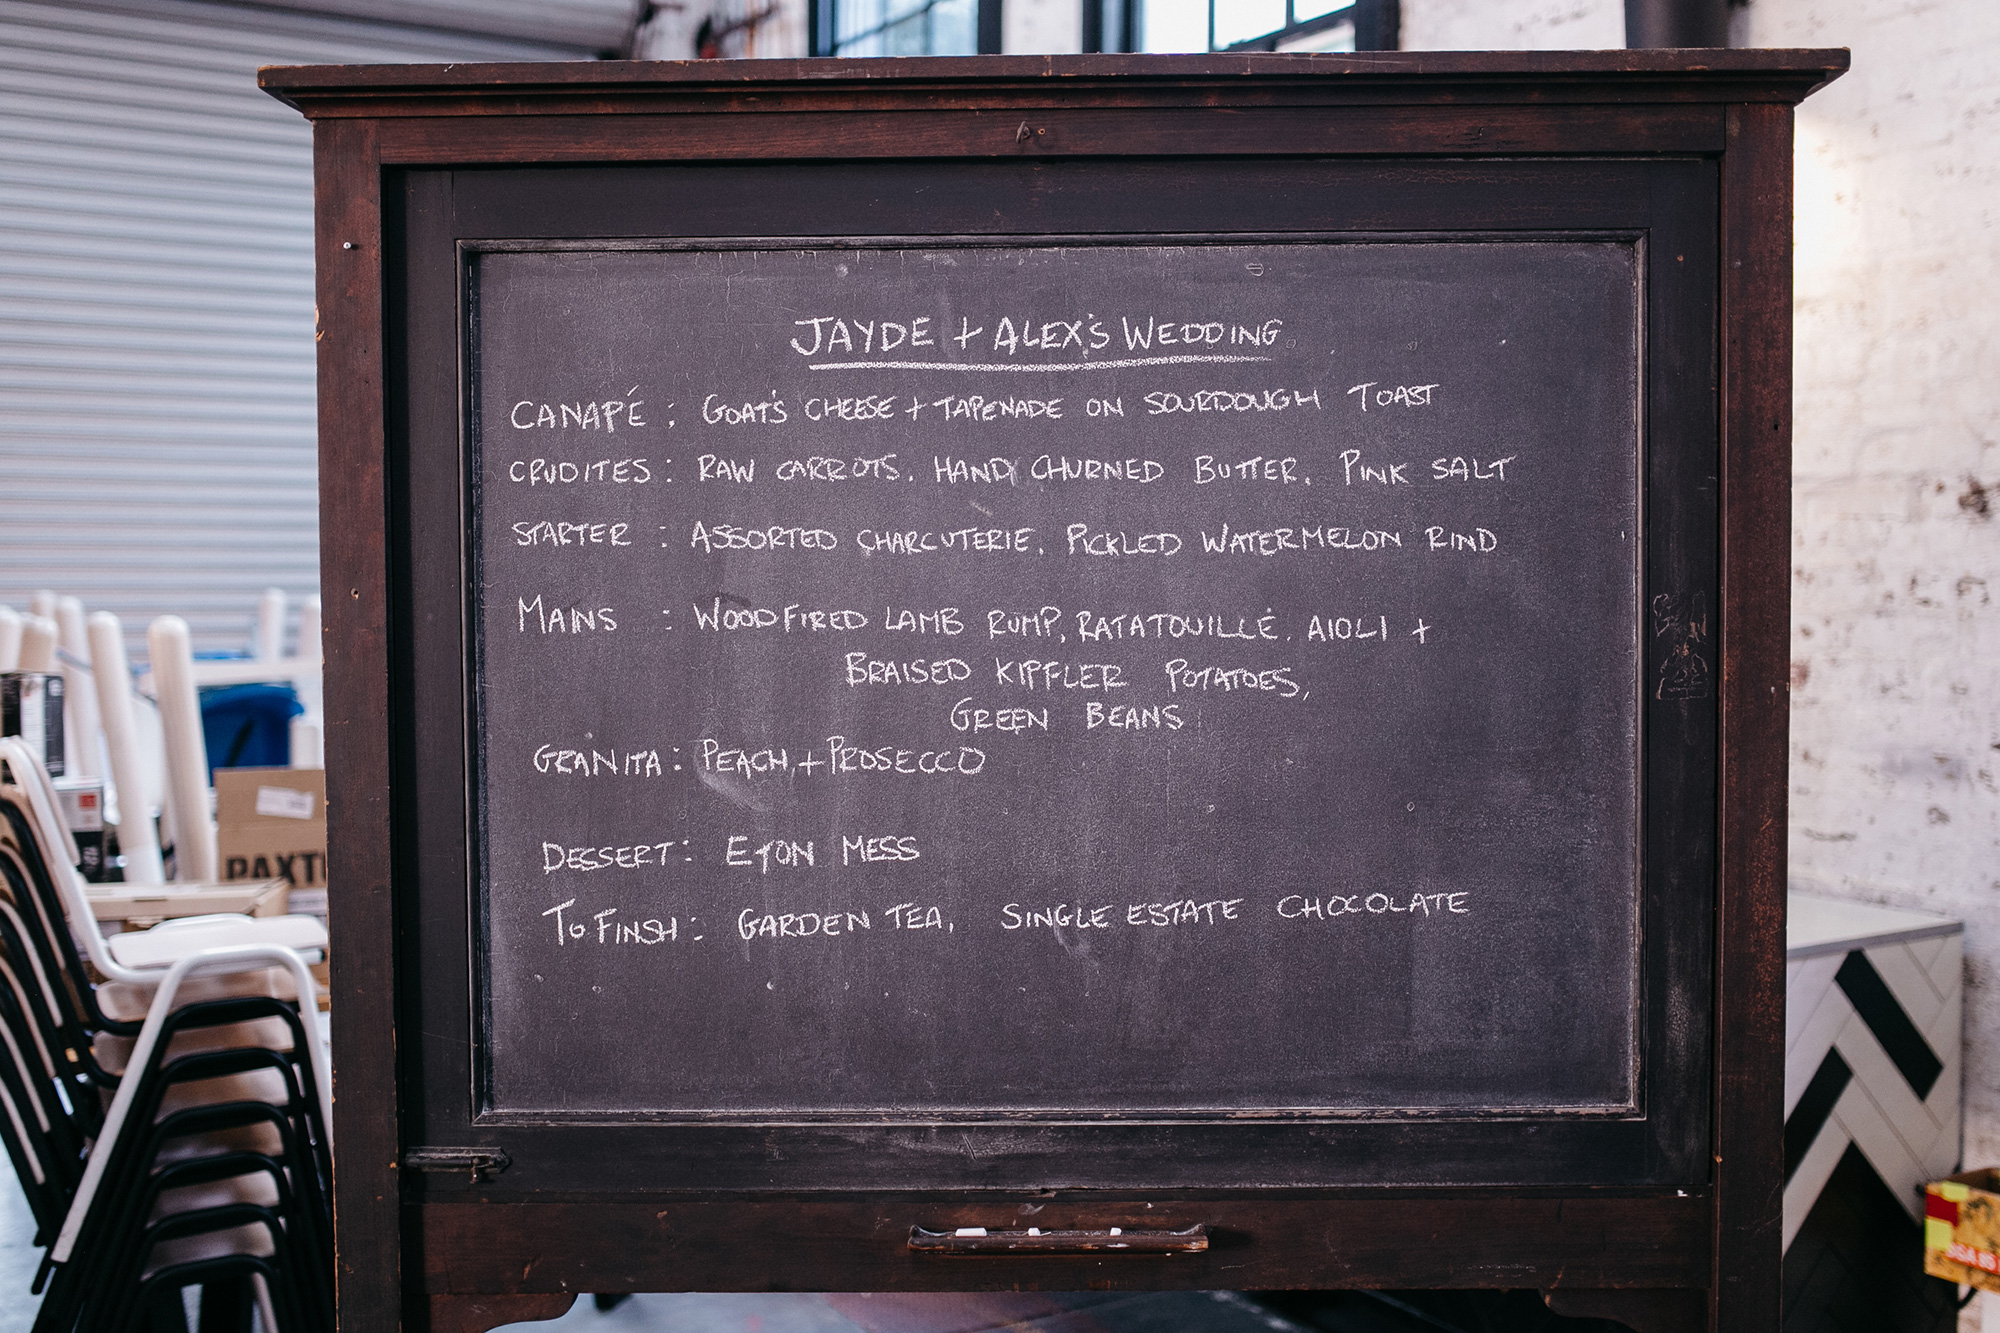 JAYDE + ALEX'S WEDDING
CANAPÉ : GOAT'S CHEESE + TAPENADE ON SOURDOUGH TOAST
CRUDITES : RAW CARROTS. HAND CHURNED BUTTER. PINK SALT
STARTER : ASSORTED CHARCUTERIE. PICKLED WATERMELON RIND
MAINS : WOODFIRED LAMB RUMP, RATATOUILLE. AIOLI +
BRAISED KIPFLER POTATOES,
GREEN BEANS
GRANITA : PEACH + PROSECCO
DESSERT : ETON MESS
TO FINSH : GARDEN TEA, SINGLE ESTATE CHOCOLATE